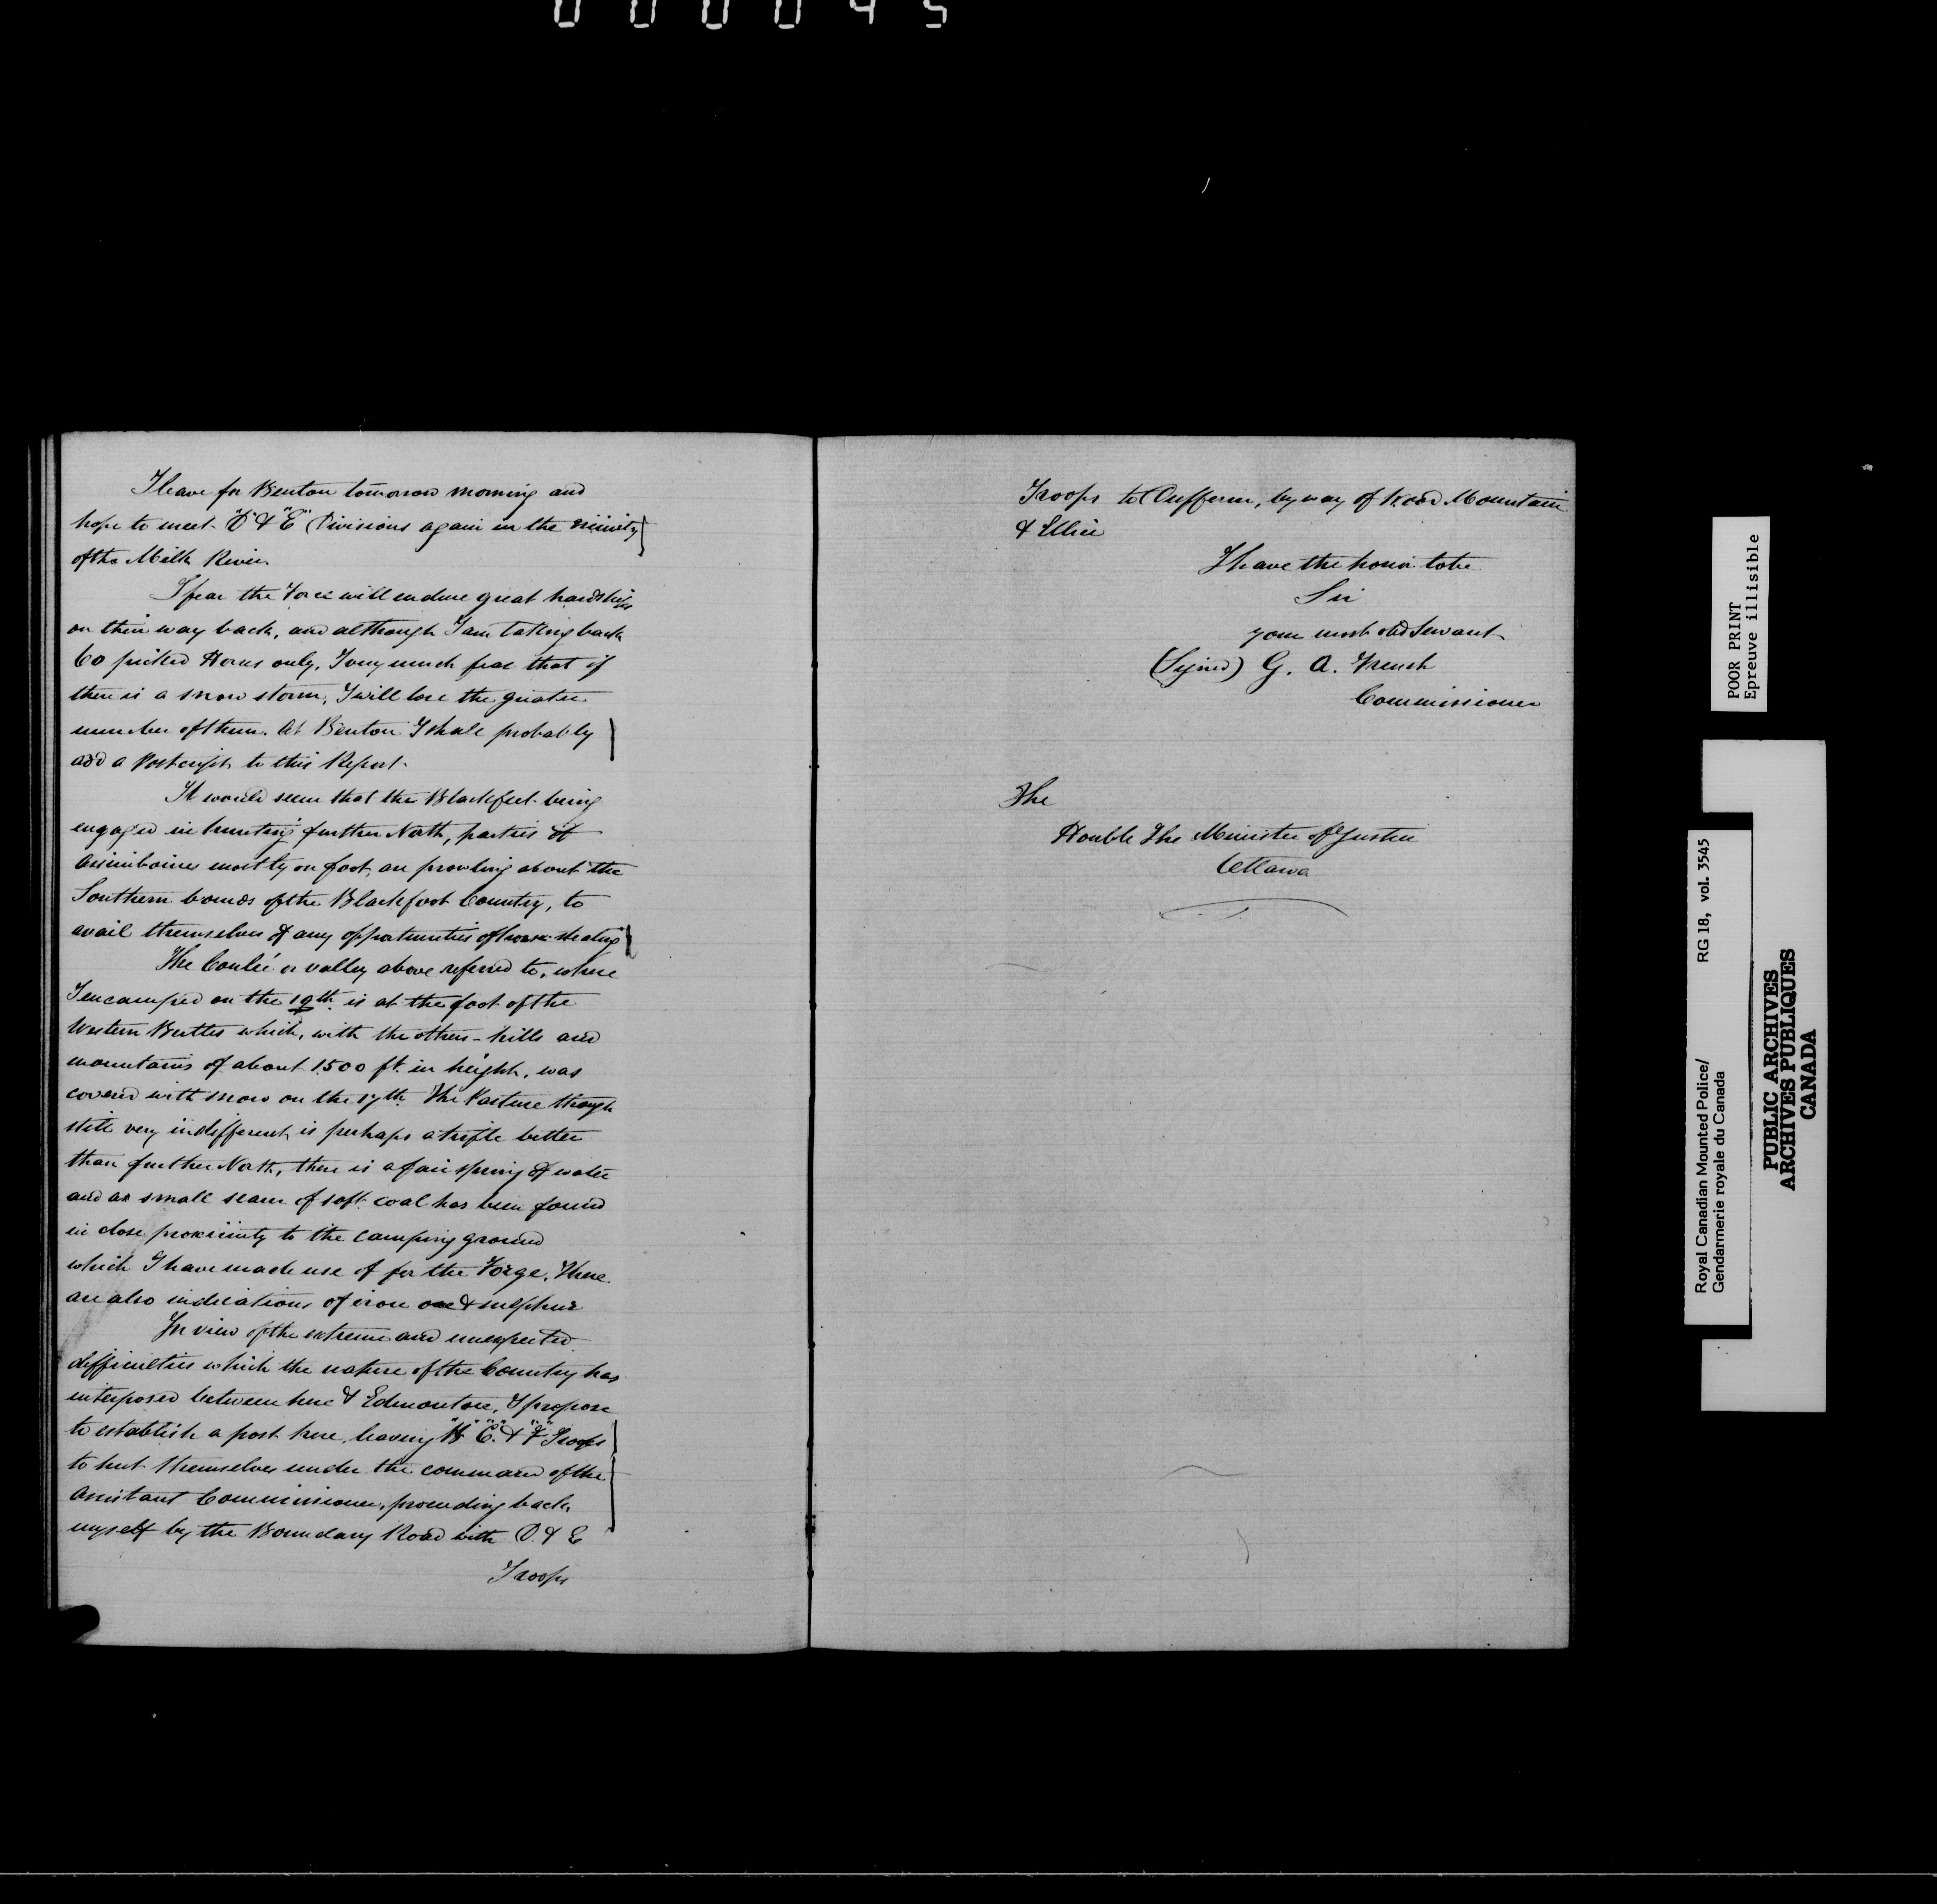 000045
I leave for Benton tomorrow morning and
hope to meet "D" & "E" Divisions again in the vicinity
of the Milk River.
I fear the Force will endure great hardships
on their way back, and although I am taking back
60 picked Horses only, I very much fear that if
there is a snow storm, I will lose the greater
number of them. At Benton I shall probably
add a Postcript to this Report.
It would seem that the Blackfeet being
engaged in hunting further North, parties of
Assiniboines mostly on foot, are prowling about the
Southern bounds of the Blackfoot Country, to
avail themselves of any opportunities of horse stealing
The Coulee or valley above referred to, where
I encamped on the 19th is at the foot of the
Western Buttes which, with the others - hills and
mountains of about 1500 ft in height, was
covered with snow on the 17th. The Pasture though
still very indifferent, is perhaps a trifle better
than further North, there is a fair spring of water
and a small seam of soft coal has been found
in close proximity to the camping ground
which I have made use of for the Forge. There
are also indications of iron ore & sulphur
In view of the extreme and unexpected
difficulties which the nature of the Country has
interposed between here & Edmonton, I propose
to establish a post here, leaving "B" "C" & "F" Troops
to hut themselves under the command of the
Assistant Commissioner, proceeding back
myself by the Boundary Road with D. & E
Troops
Troops to Dufferin, by way of Wood Mountain
& Ellice
I have the honor to be
Sir
your most obd Servant
(Signed) G. A. French
Commissioner
The
Honble The Minister of Justice
Ottawa
POOR PRINT
Epreuve illisible
Royal Canadian Mounted Police/ RG 18, vol. 3545
Gendarmerie royale du Canada
PUBLIC ARCHIVES
ARCHIVES PUBLIQUES
CANADA